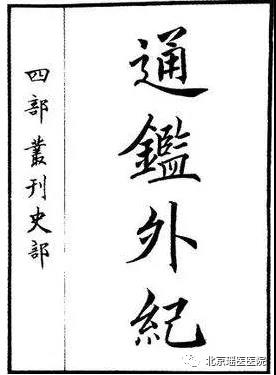 通鑑外紀
四部叢刊史部
北京瑶医医院